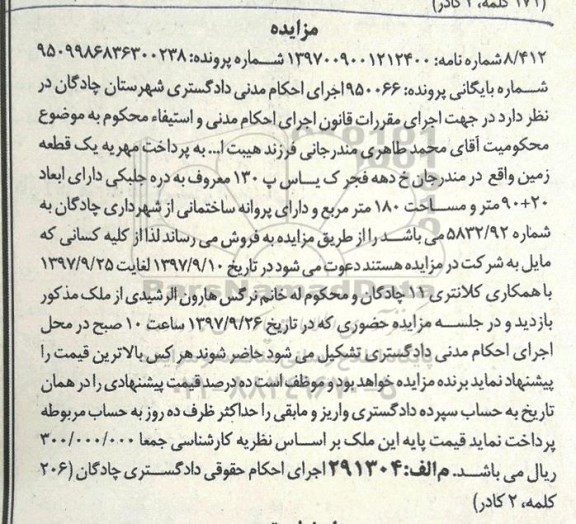 ۱۷۱ کلمه، ۲ کادر)
مزایده
۸/۴۱۲ شماره نامه: ۱۳۹۷۰۰۹۰۰۱۲۱۲۴۰۰ شماره پرونده: ۹۵۰۹۹۸۶۸۳۶۳۰۰۲۳۸
شماره بایگانی پرونده: ۹۵۰۰۶۶ اجرای احکام مدنی دادگستری شهرستان چادگان در
نظر دارد در جهت اجرای مقررات قانون اجرای احکام مدنی و استیفاء محکوم به موضوع
محکومیت آقای محمد طاهری مندرجانی فرزند هیبت ا... به پرداخت مهریه یک قطعه
زمین واقع در مندرجان خ دهه فجر ک یاس پ ۱۳۰ معروف به دره جلبکی دارای ابعاد
۲۰+۹۰ متر و مساحت ۱۸۰ متر مربع و دارای پروانه ساختمانی از شهرداری چادگان به
شماره ۵۸۳۲/۹۲ می باشد را از طریق مزایده به فروش می رساند لذا از کلیه کسانی که
مایل به شرکت در مزایده هستند دعوت می شود در تاریخ ۱۳۹۷/۹/۱۰ لغایت ۱۳۹۷/۹/۲۵
با همکاری کلانتری ۱۱ چادگان و محکوم له خانم نرگس هارون الرشیدی از ملک مذکور
بازدید و در جلسه مزایده حضوری که در تاریخ ۱۳۹۷/۹/۲۶ ساعت ۱۰ صبح در محل
اجرای احکام مدنی دادگستری تشکیل می شود حاضر شوند هر کس بالاترین قیمت را
پیشنهاد نماید برنده مزایده خواهد بود و موظف است ده درصد قیمت پیشنهادی را در همان
تاریخ به حساب سپرده دادگستری واریز و مابقی را حداکثر ظرف ده روز به حساب مربوطه
پرداخت نماید قیمت پایه این ملک بر اساس نظریه کارشناسی جمعا ۳۰۰/۰۰۰/۰۰۰
ریال می باشد. م الف: ۲۹۱۳۰۴ اجرای احکام حقوقی دادگستری چادگان (۲۰۶
کلمه، ۲ کادر)
ParsNamadData